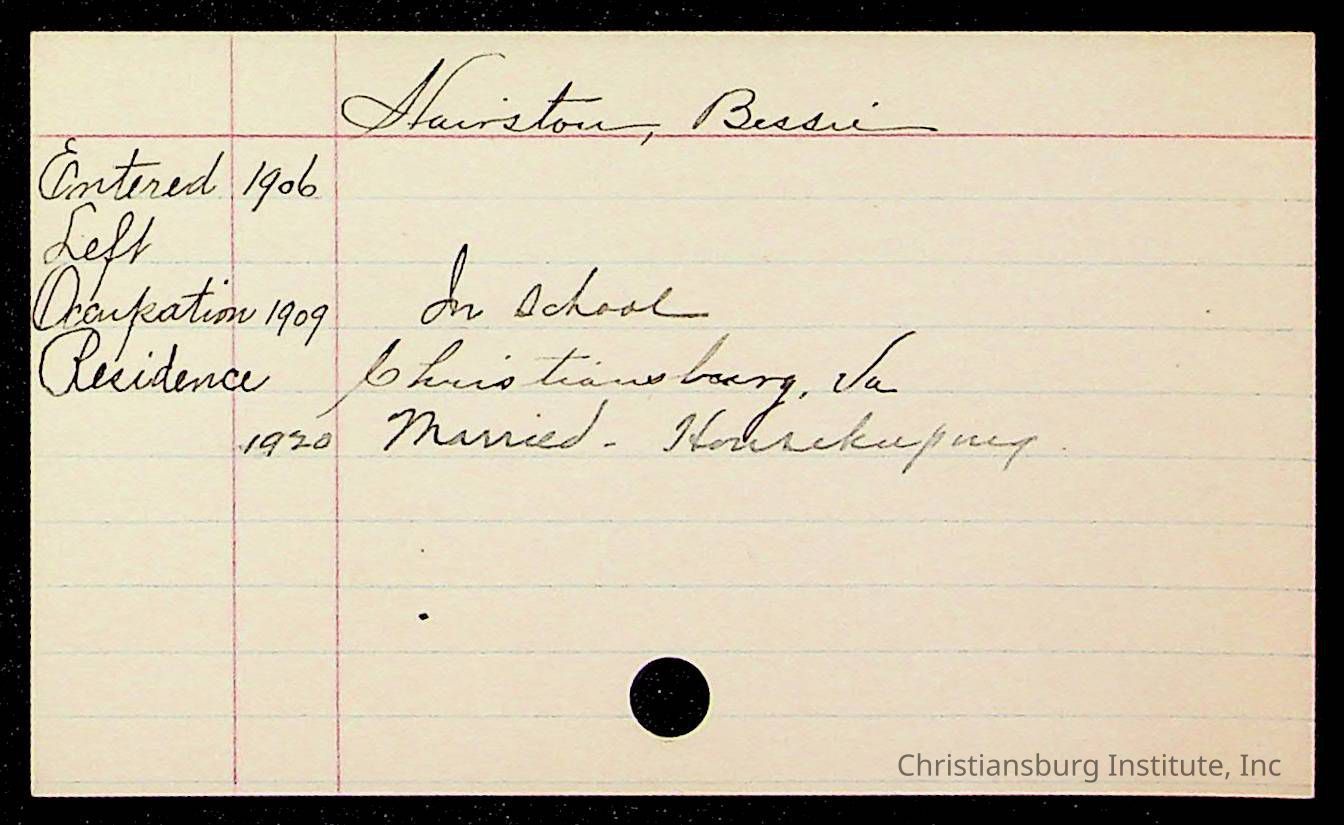 Hairston, Bessie
Entered 1906
Left
Occupation 1909 In school
Residence Christiansburg, Va
1920 Married - Housekeeping.
Christiansburg Institute, Inc